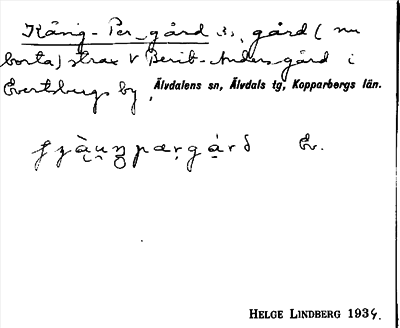 Kång-Per-gård :s, gård (nu
borta) strax V Berit-Anders-gård i
Evertsbergs by, Älvdalens sn, Älvdals tg, Kopparbergs län.
Ev.
HELGE LINDBERG 1934.